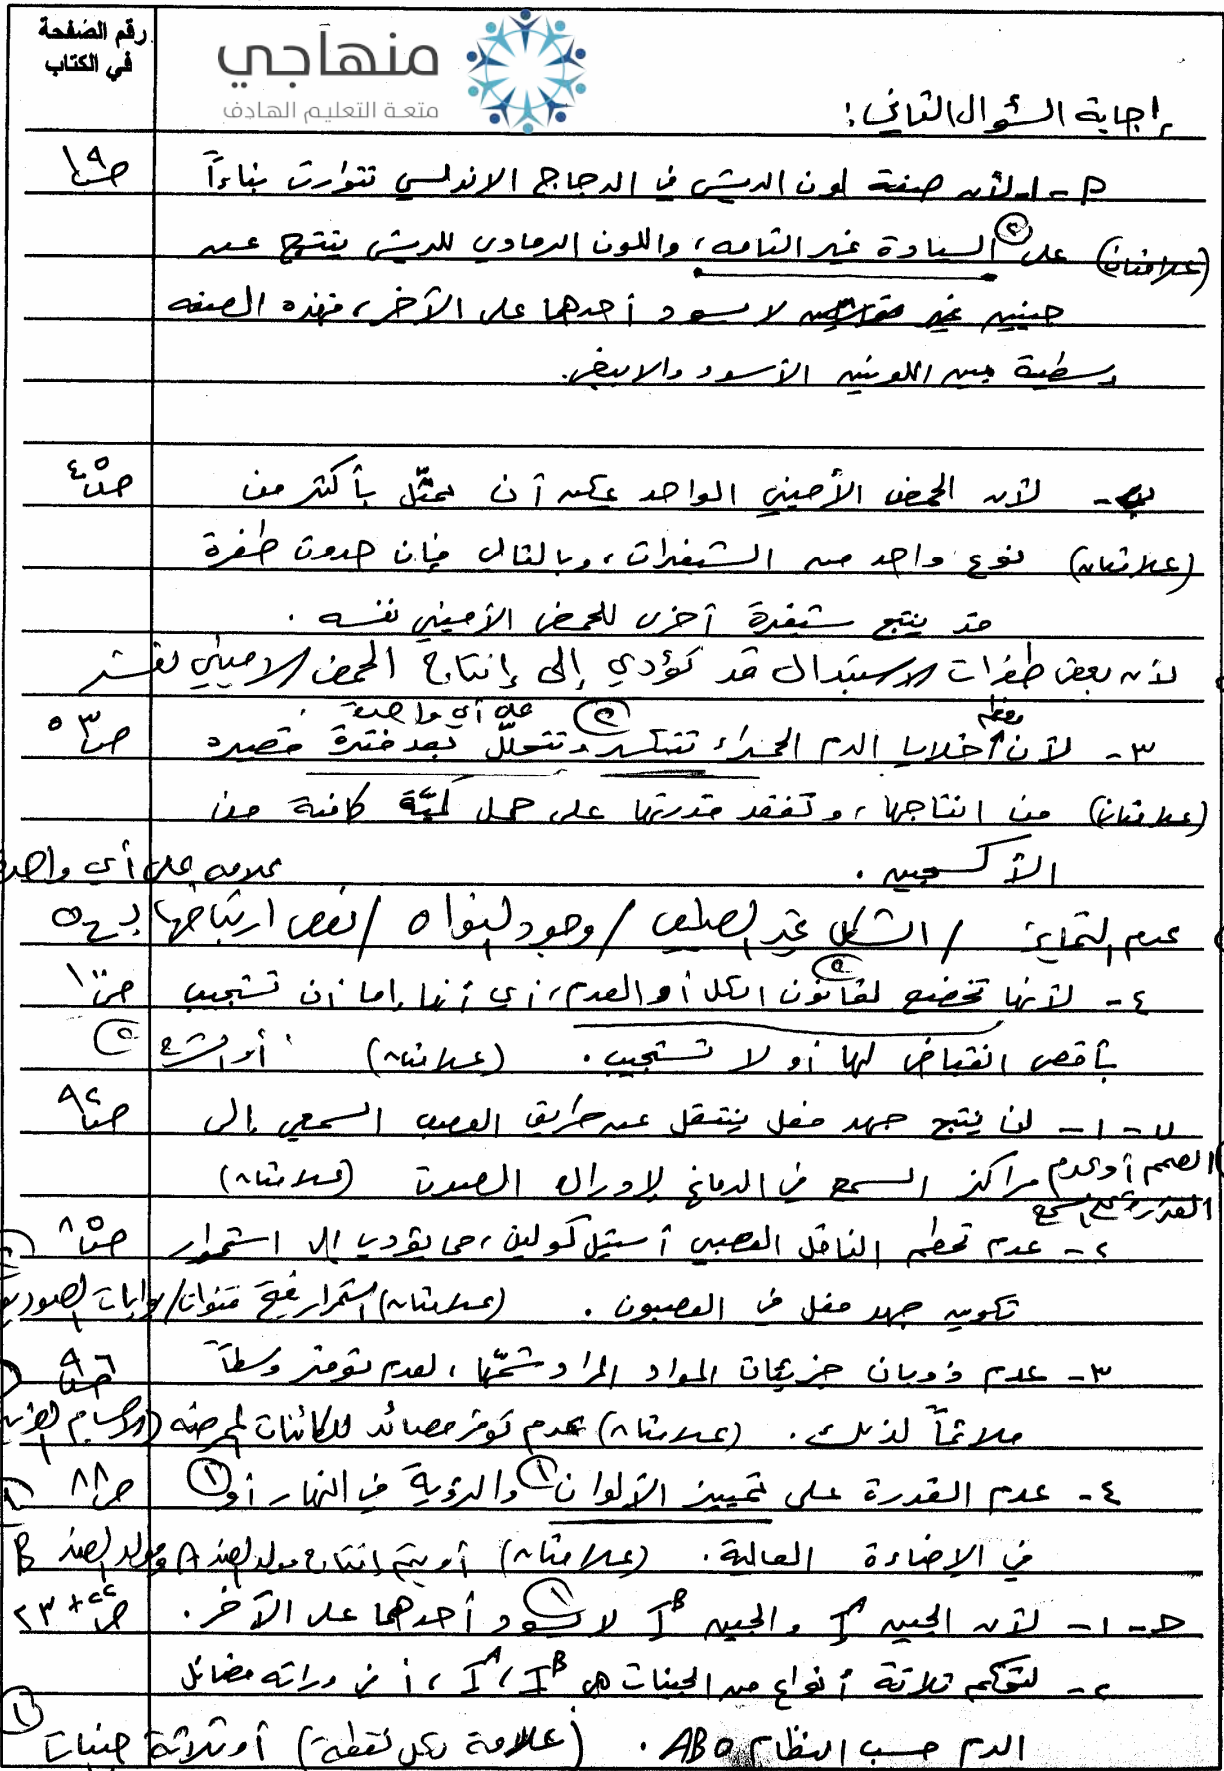 رقم الصفحة
في الكتاب
منهاجي
متعة التعليم الهادف
إجابة السؤال الثاني:
P - ١- لأن صفة لون الريش في الدجاج الاندلسي تتوارث بناءاً
ص١٩
(علامتان) على السيادة غير التامه، واللون الرمادي للريش ينتج عن
جينين غير لا يسود أحدهما على الآخر، فهذه الصفه
وسطية بين اللونين الأسود والابيض.
٢- لأن الحمض الأميني الواحد يمكن أن يمثّل بأكثر من
ص٤٥
(علامتان) نوع واحد من الشيفرات، وبالتالي فإن حدوث طفرة
قد ينتج شيفرة أخرى للحمض الأميني نفسه.
لأن بعض طفرات الاستبدال قد تؤدي إلى إنتاج الحمض الاميني نفسه
على أي واحدة
٣- لأن معظم خلايا الدم الحمراء تتكسر وتتحلل بعد فترة قصيرة
ص٥٣
(علامتان) من انتاجها، وتفقد قدرتها على حمل كميّة كافية من
الأكسجين.
علامه على أي واحدة
عدم التمايز / الشكل غير الطبيعي / وجود النواه / نقص ارتباطها بـ
٤- لأنها تخضع لقانون الكل أو العدم، أي أنها إما أن تستجيب
ص١٠٠
بأقصى انقباض لها أو لا تستجيب. (علامتان) أو الشرح
ب - ١- لن ينتج جهد فعل ينتقل عن طريق العصب السمعي إلى
ص٩٢
الصمم أو عدم القدرة على السمع
مراكز السمع في الدماغ لإدراك الصوت (علامتان)
٢- عدم تحطم الناقل العصبي أستيل كولين، مما يؤدي إلى استمرار
ص٨٥
تكوين جهد فعل في العصبون. (علامتان) استمرار فتح قنوات/بوابات الصوديوم
٣- عدم ذوبان جزيئات المواد المراد شمّها، لعدم توفر وسطاً
ص٩٦
ملائماً لذلك. (علامتان) عدم توفر مصائد للكائنات الممرضه (الاجسام الغريبة
٤- عدم القدرة على تمييز الألوان والرؤية في النهار أو
ص٨٨
في الإضاءة العالية. (علامتان) أو يتم إنتاج مولد الضد A ومولد الضد B
حـ - ١- لأن الجين Iᴬ والجين Iᴮ لا يسود أحدهما على الآخر.
ص٢٢+٢٣
٢- لتحكم ثلاثة أنواع من الجينات هي Iᴮ، Iᴬ، i في وراثة فصائل
الدم حسب النظام ABO. (علامة لكل نقطة) أو ثلاثة جينات